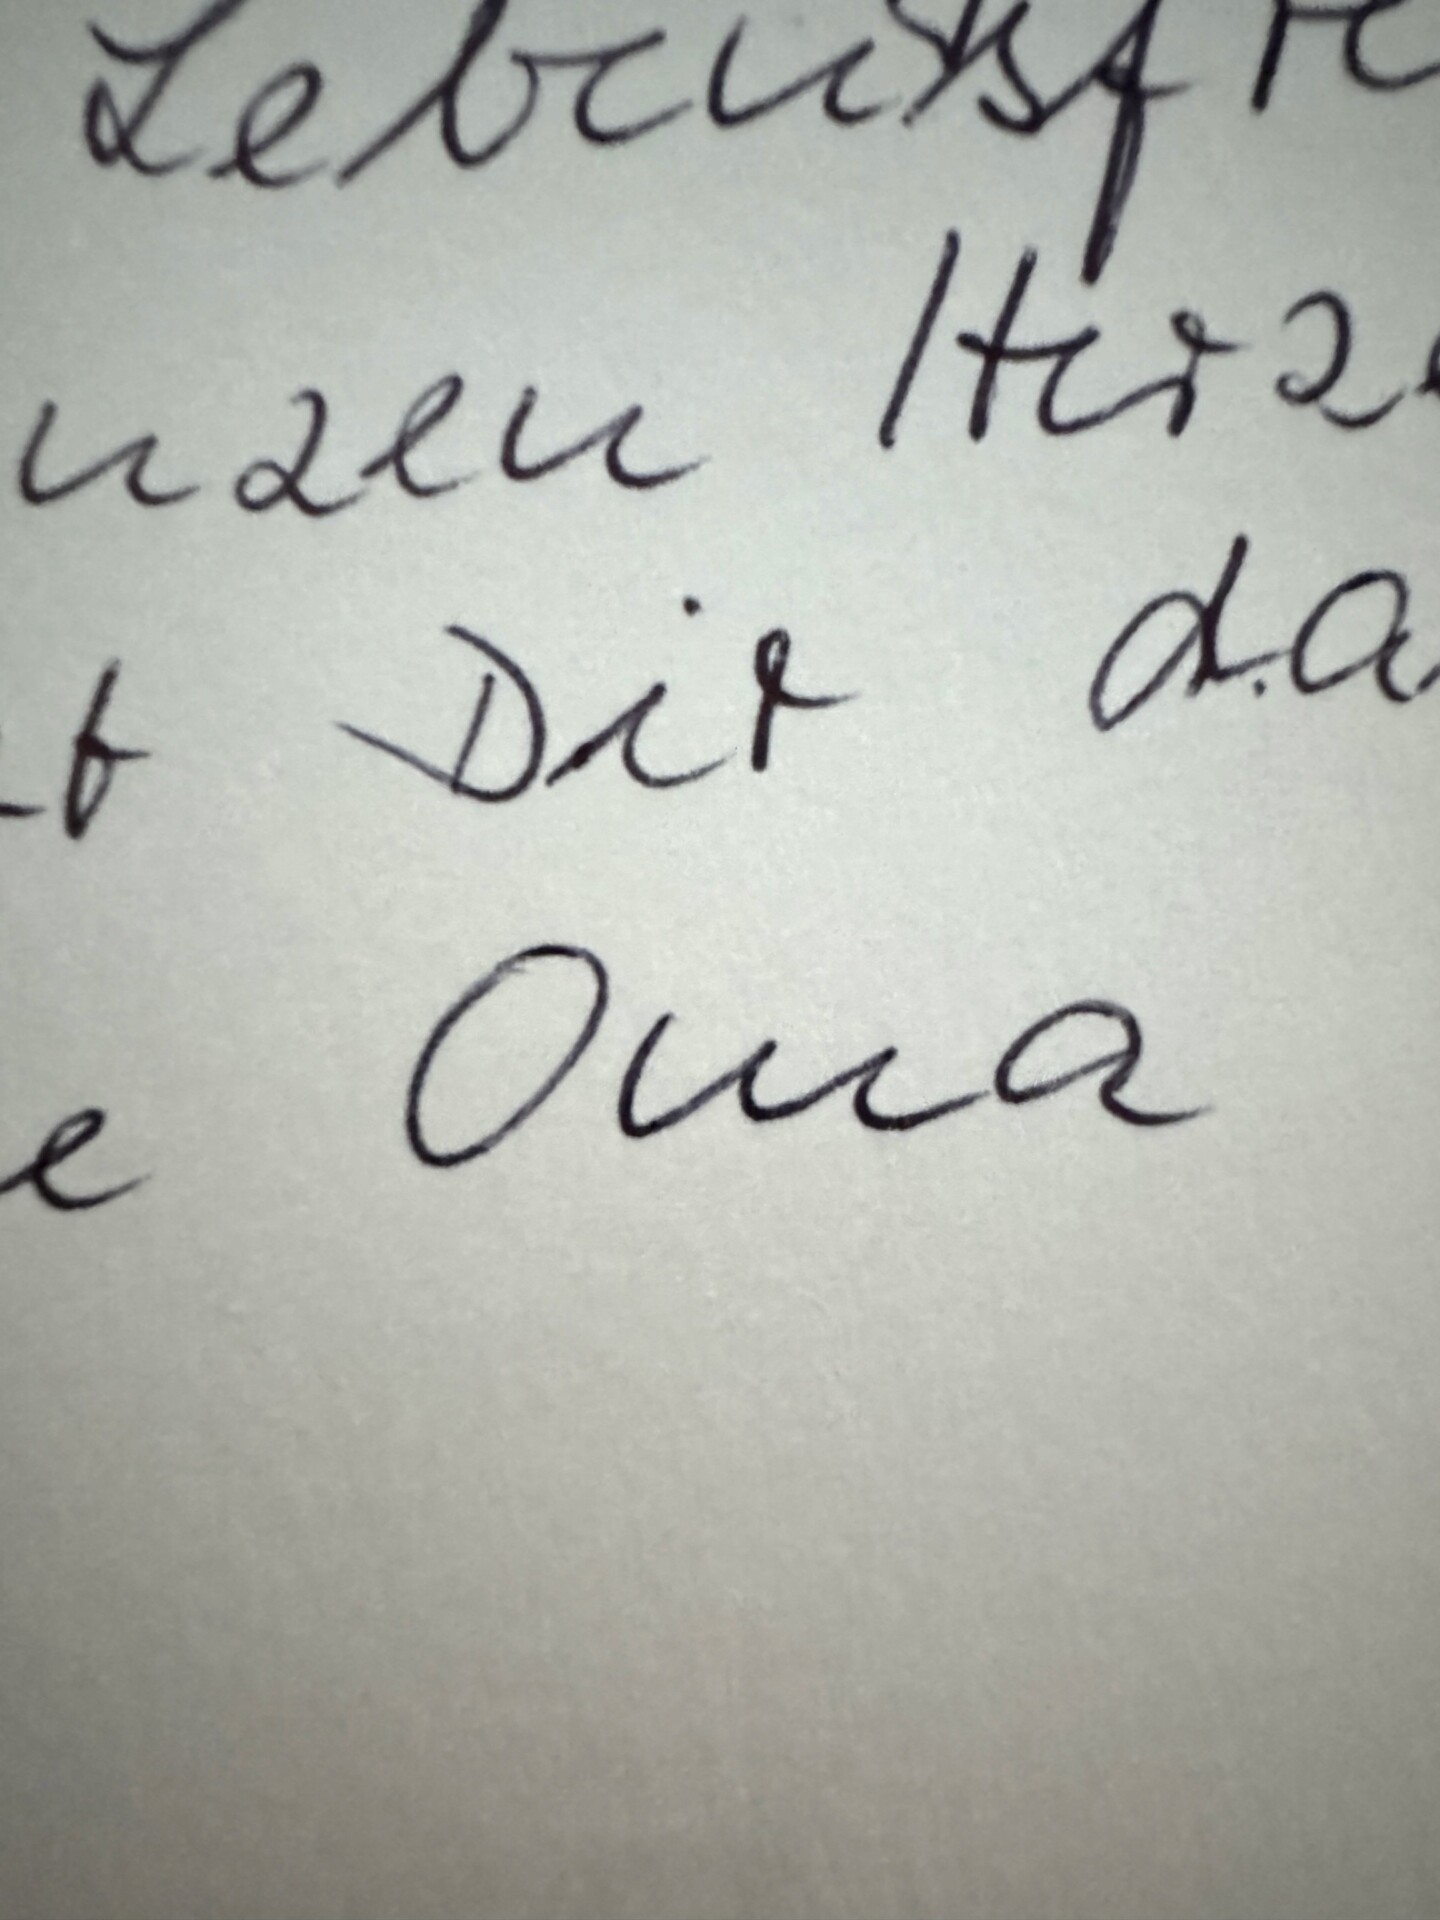 Lebensfre
nzen Herze
t Dir da
e Oma